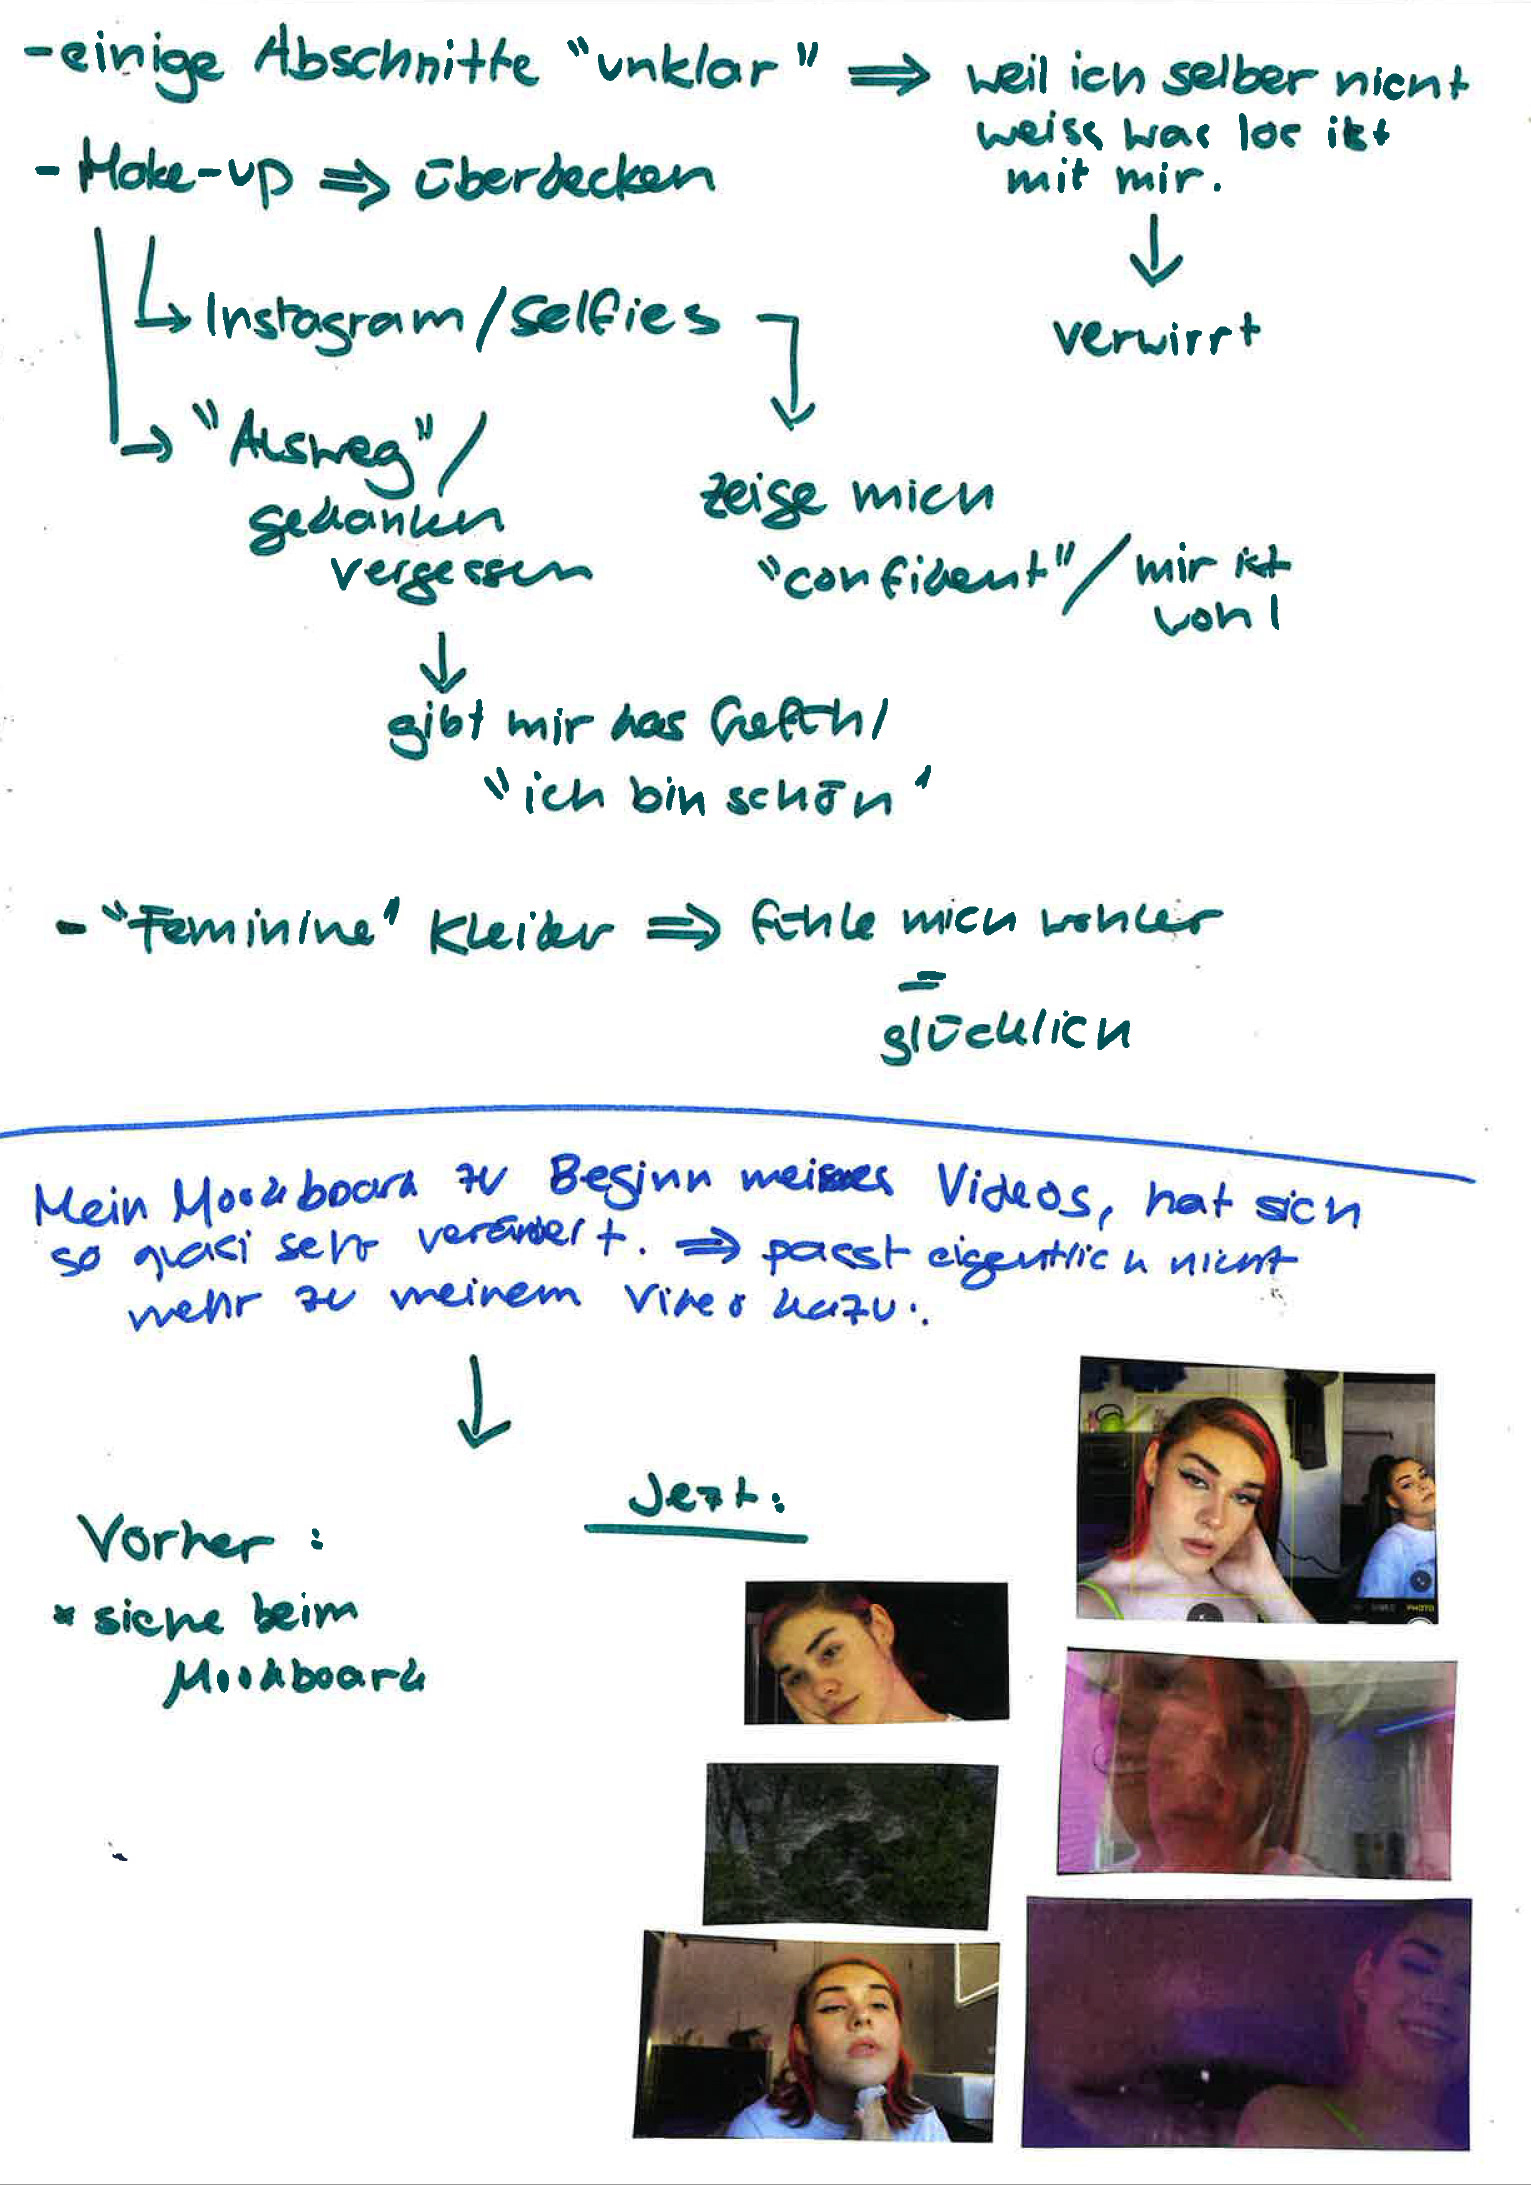 - einige Abschnitte "unklar" ⇒ weil ich selber nicht
weiss was los ist
mit mir.
↓
verwirrt
- Make-up ⇒ überdecken
↳ Instagram/selfies
→ "Ausweg"/
gedanken
vergessen
↓
gibt mir das Gefühl
"ich bin schön"
zeige mich
"confident"/mir ist
wohl
- "Feminine" Kleider ⇒ fühle mich wohler
=
glücklich
Mein Moodboard zu Beginn meines Videos, hat sich
so quasi sehr verändert. ⇒ passt eigentlich nicht
mehr zu meinem Video dazu.
↓
Vorher:
* siehe beim
Moodboard
Jezt:
VIDEO PHOTO